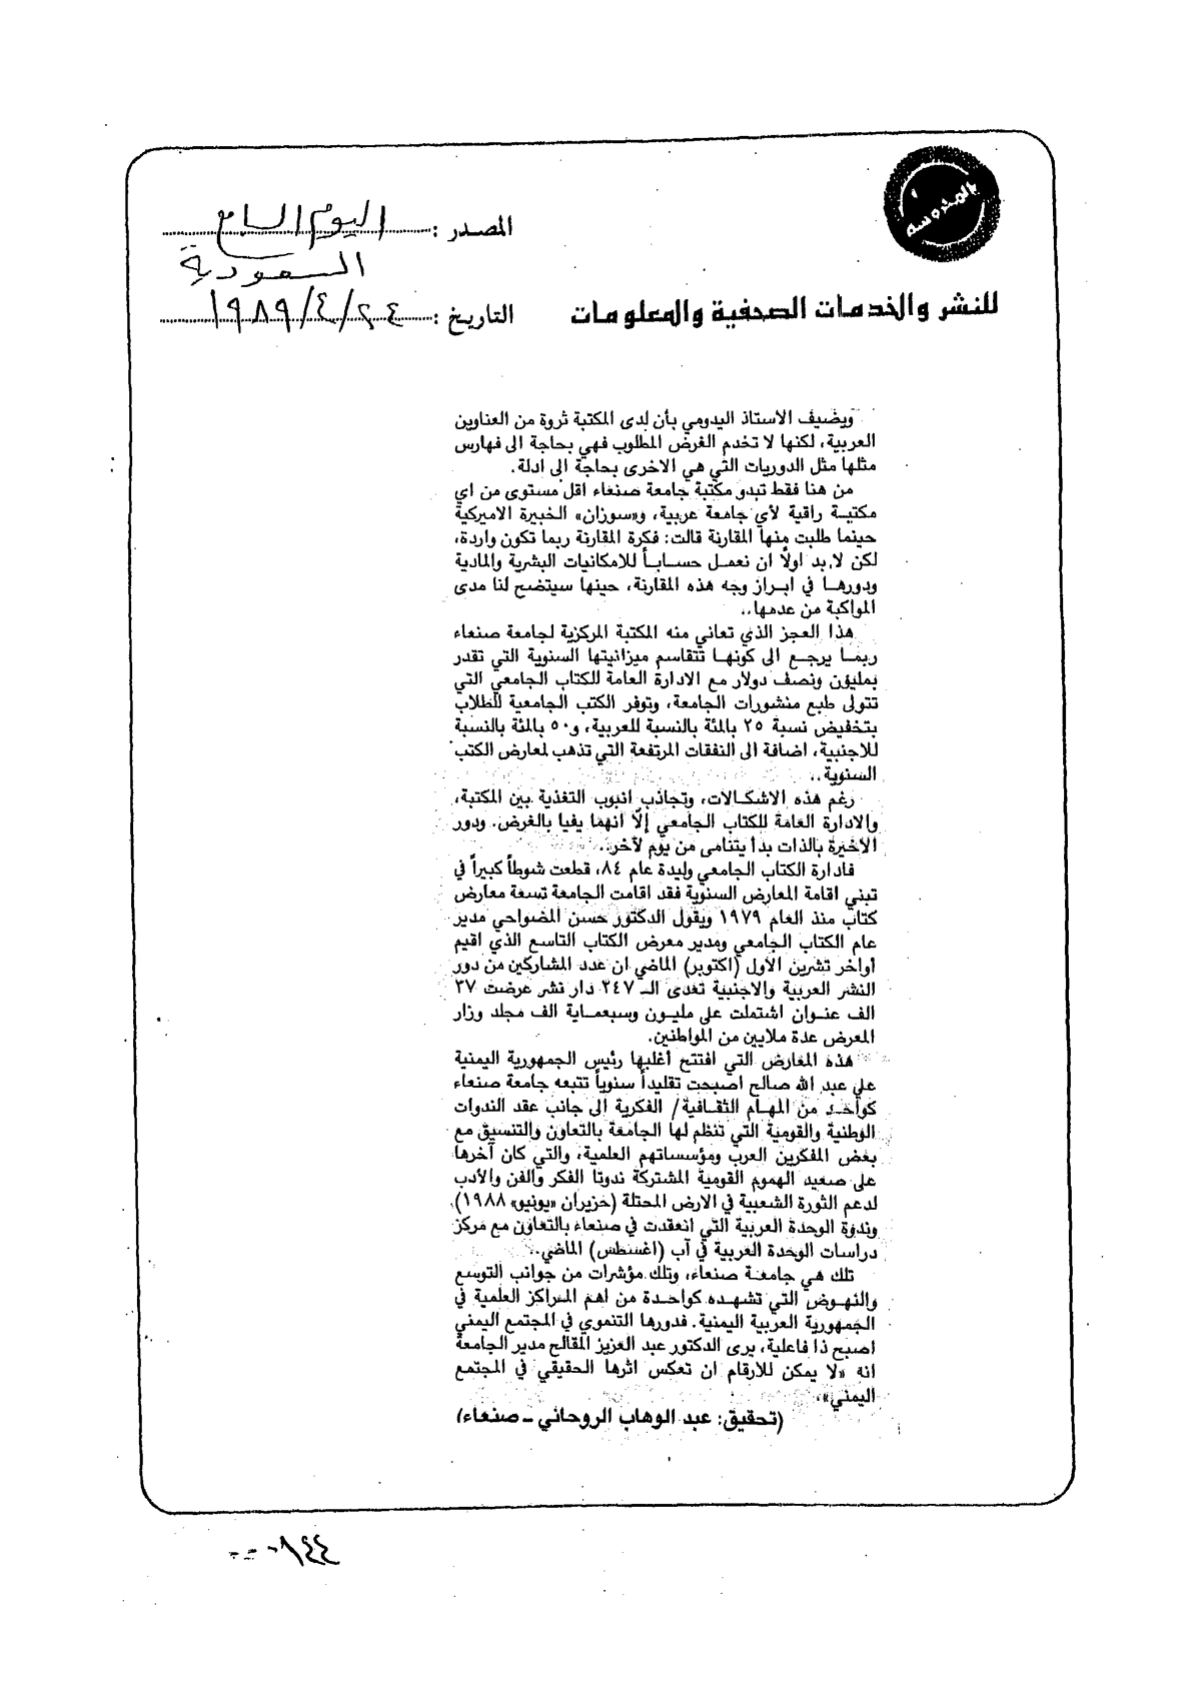 بالمحروسة
المصدر : اليوم السابع
السعودية
للنشر والخدمات الصحفية والمعلومات
التاريخ : ٢٤/٤/١٩٨٩
ويضيف الاستاذ اليدومي بأن لدى المكتبة ثروة من العناوين
العربية، لكنها لا تخدم الغرض المطلوب فهي بحاجة الى فهارس
مثلها مثل الدوريات التي هي الاخرى بحاجة الى ادلة.
من هنا فقط تبدو مكتبة جامعة صنعاء اقل مستوى من اي
مكتبة راقية لأي جامعة عربية، و«سوزان» الخبيرة الاميركية
حينما طلبت منها المقارنة قالت: فكرة المقارنة ربما تكون واردة،
لكن لا بد اولاً ان نعمل حساباً للامكانيات البشرية والمادية
ودورها في ابراز وجه هذه المقارنة، حينها سيتضح لنا مدى
المواكبة من عدمها..
هذا العجز الذي تعاني منه المكتبة المركزية لجامعة صنعاء
ربما يرجع الى كونها تتقاسم ميزانيتها السنوية التي تقدر
بمليون ونصف دولار مع الادارة العامة للكتاب الجامعي التي
تتولى طبع منشورات الجامعة، وتوفر الكتب الجامعية للطلاب
بتخفيض نسبة ٢٥ بالمئة بالنسبة للعربية، و٥٠ بالمئة بالنسبة
للاجنبية، اضافة الى النفقات المرتفعة التي تذهب لمعارض الكتب
السنوية..
رغم هذه الاشكالات، وتجاذب انبوب التغذية بين المكتبة،
والادارة العامة للكتاب الجامعي إلّا انهما يفيا بالغرض. ودور
الاخيرة بالذات بدأ يتنامى من يوم لآخر..
فادارة الكتاب الجامعي وليدة عام ٨٤، قطعت شوطاً كبيراً في
تبني اقامة المعارض السنوية فقد اقامت الجامعة تسعة معارض
كتاب منذ العام ١٩٧٩ ويقول الدكتور حسن المضواحي مدير
عام الكتاب الجامعي ومدير معرض الكتاب التاسع الذي اقيم
أواخر تشرين الاول (اكتوبر) الماضي ان عدد المشاركين من دور
النشر العربية والاجنبية تعدى الـ ٢٤٧ دار نشر عرضت ٣٧
الف عنوان اشتملت على مليون وسبعماية الف مجلد وزار
المعرض عدة ملايين من المواطنين.
هذه المعارض التي افتتح أغلبها رئيس الجمهورية اليمنية
علي عبد الله صالح اصبحت تقليداً سنوياً تتبعه جامعة صنعاء
كواحد من المهام الثقافية/ الفكرية الى جانب عقد الندوات
الوطنية والقومية التي تنظم لها الجامعة بالتعاون والتنسيق مع
بعض المفكرين العرب ومؤسساتهم العلمية، والتي كان آخرها
على صعيد الهموم القومية المشتركة ندوتا الفكر والفن والأدب
لدعم الثورة الشعبية في الارض المحتلة (حزيران «يونيو» ١٩٨٨)،
وندوة الوحدة العربية التي انعقدت في صنعاء بالتعاون مع مركز
دراسات الوحدة العربية في آب (اغسطس) الماضي..
تلك هي جامعة صنعاء، وتلك مؤشرات من جوانب التوسع
والنهوض التي تشهده كواحدة من اهم المراكز العلمية في
الجمهورية العربية اليمنية. فدورها التنموي في المجتمع اليمني
اصبح ذا فاعلية، يرى الدكتور عبد العزيز المقالح مدير الجامعة
انه «لا يمكن للارقام ان تعكس اثرها الحقيقي في المجتمع
اليمني».
(تحقيق: عبد الوهاب الروحاني ـ صنعاء)